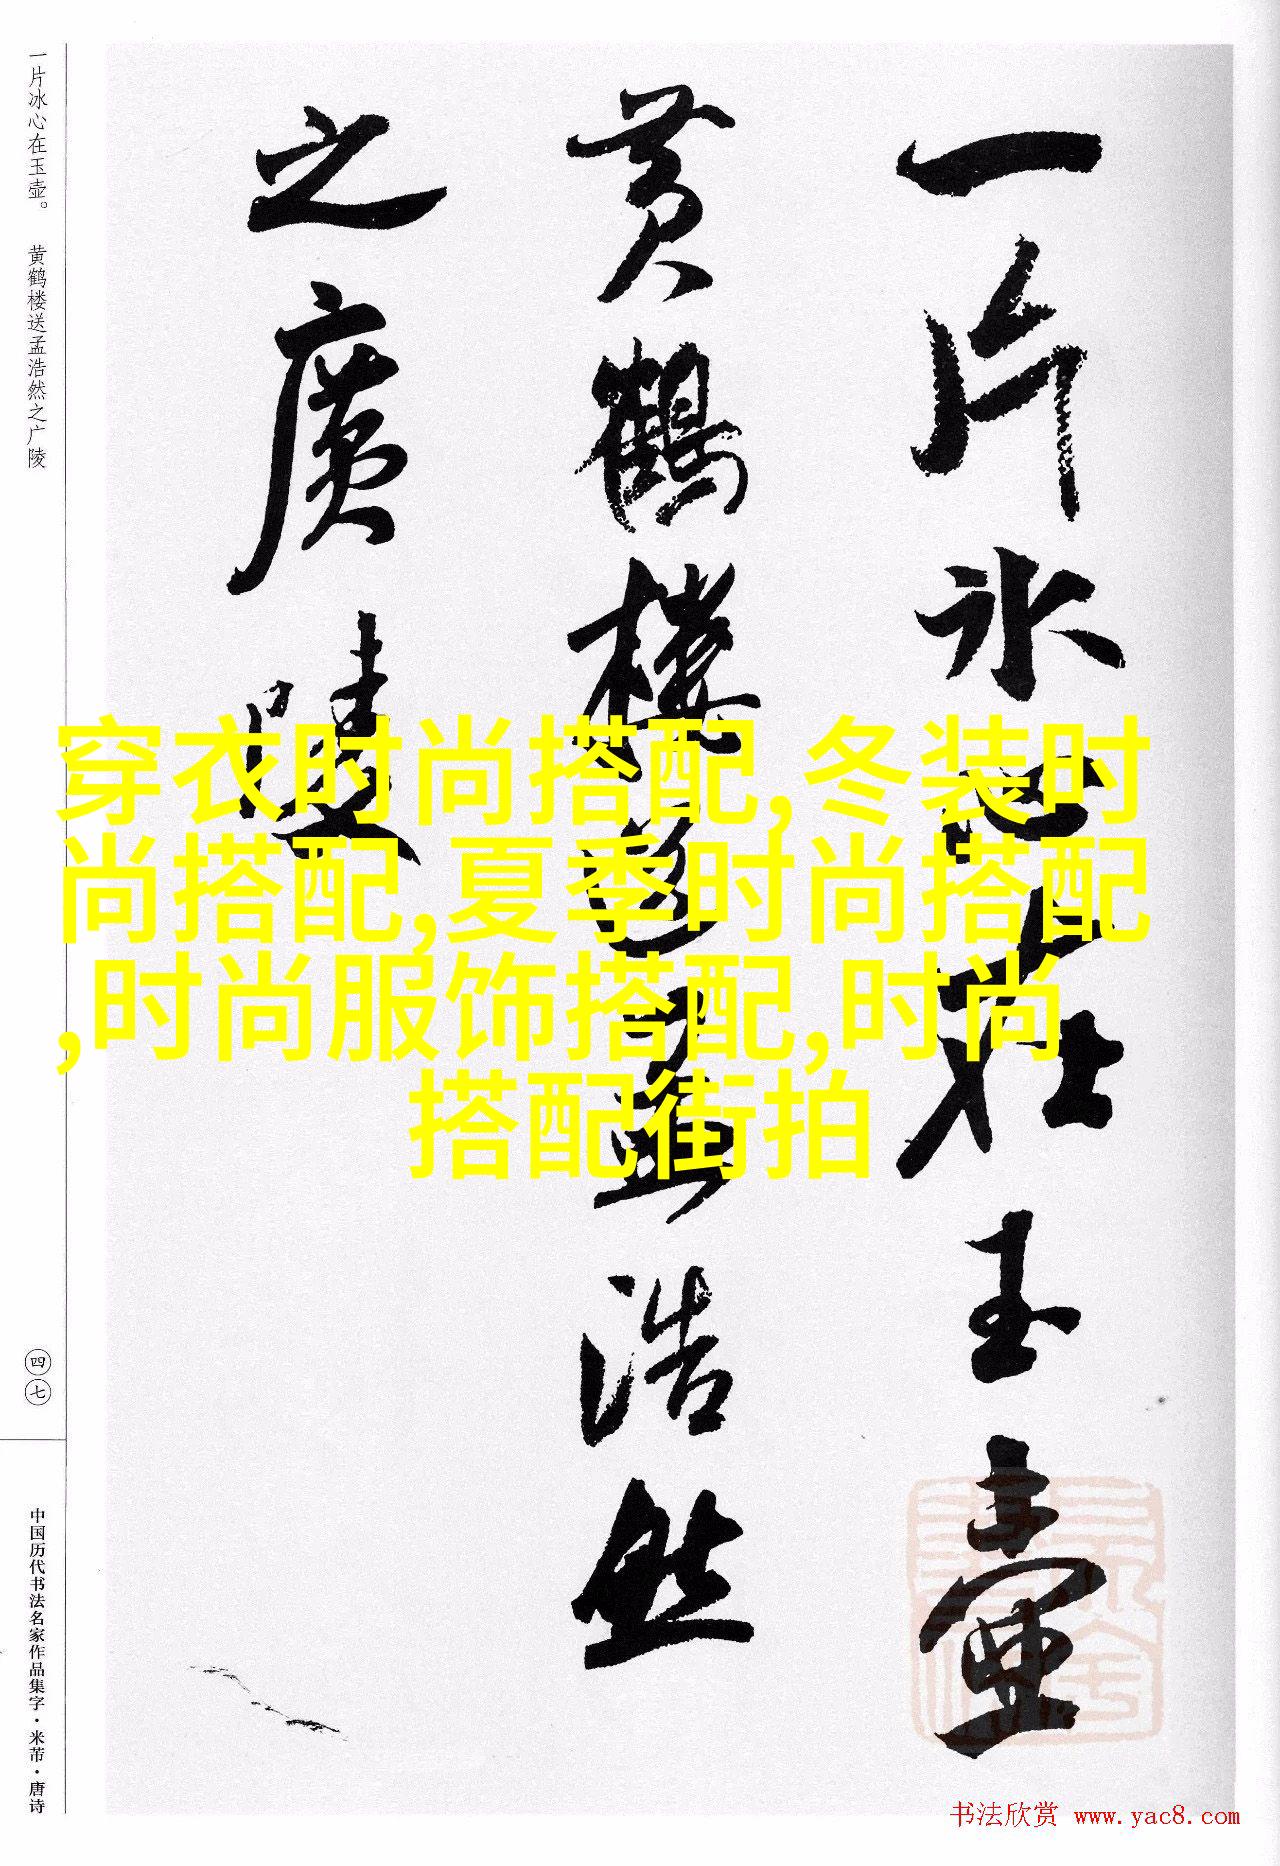 一片冰心在玉壶
黄鹤楼送孟浩然
之廣陵
一片冰心在玉壶。 黄鹤楼送孟浩然之广陵
四七
中国历代书法名家作品集字·米芾·唐诗
穿衣时尚搭配,冬装时
尚搭配,夏季时尚搭配
,时尚服饰搭配,时尚
搭配街拍
书法欣赏 www.yac8.com